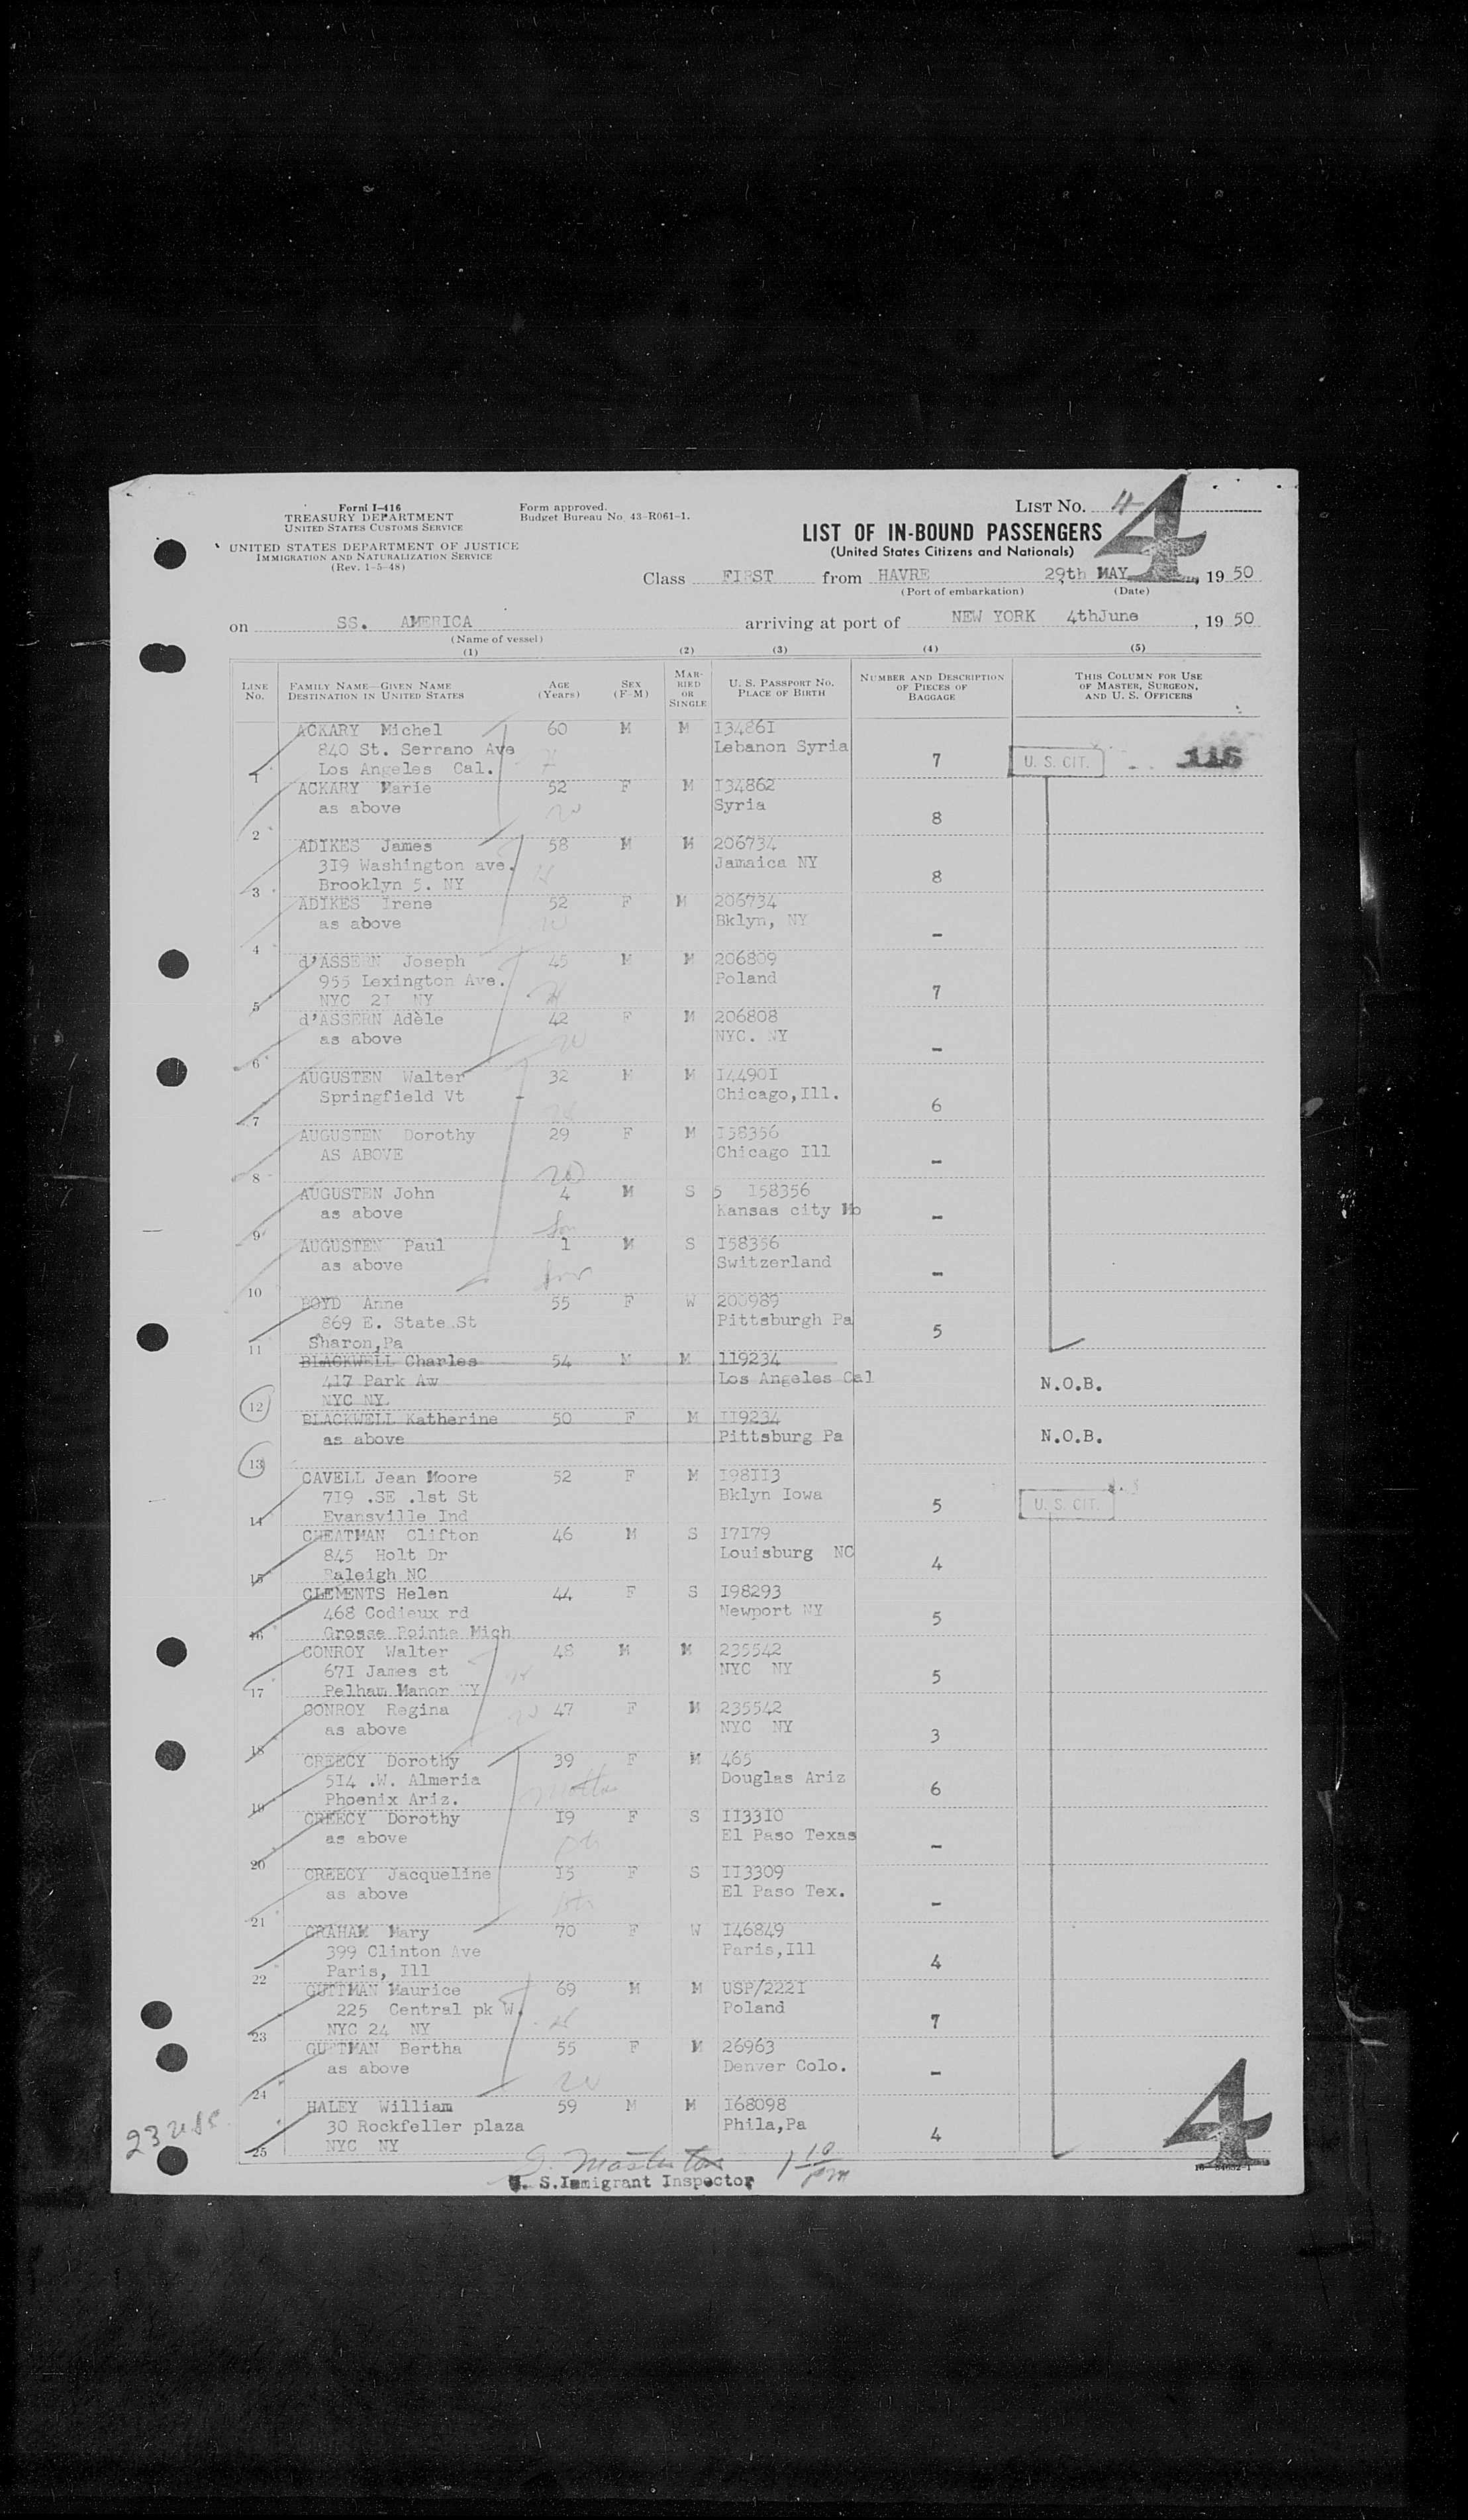 Form I-416
TREASURY DEPARTMENT
UNITED STATES CUSTOMS SERVICE
Form approved.
Budget Bureau No. 43-R061-1.
LIST No. 4
4
UNITED STATES DEPARTMENT OF JUSTICE
IMMIGRATION AND NATURALIZATION SERVICE
(Rev. 1-5-48)
LIST OF IN-BOUND PASSENGERS
(United States Citizens and Nationals)
Class FIRST from HAVRE 29th MAY, 19 50
(Port of embarkation) (Date)
on SS. AMERICA arriving at port of NEW YORK 4thJune, 19 50
(Name of vessel)
(1) (2) (3) (4) (5)
LINE No. FAMILY NAME—GIVEN NAME DESTINATION IN UNITED STATES AGE (Years) SEX (F-M) MARRIED OR SINGLE U. S. PASSPORT No. PLACE OF BIRTH NUMBER AND DESCRIPTION OF PIECES OF BAGGAGE THIS COLUMN FOR USE OF MASTER, SURGEON, AND U. S. OFFICERS
ACKARY Michel 60 M M I34861
840 St. Serrano Ave Lebanon Syria
1 Los Angeles Cal. 7 U. S. CIT. 116
ACKARY Marie 52 F M I34862
as above Syria
2 8
ADIKES James 58 M M 206734
3I9 Washington ave. Jamaica NY
3 Brooklyn 5. NY 8
ADIKES Irene 52 F M 206734
as above Bklyn, NY
4 -
d'ASSERN Joseph 45 M M 206809
955 Lexington Ave. Poland
5 NYC 2I NY 7
d'ASSERN Adèle 42 F M 206808
as above NYC. NY
6 -
AUGUSTEN Walter 32 M M I4490I
Springfield Vt Chicago,Ill.
7 6
AUGUSTEN Dorothy 29 F M I58356
AS ABOVE Chicago Ill
8 -
AUGUSTEN John 4 M S 5 I58356
as above Kansas city Mo
9 Son -
AUGUSTEN Paul 1 M S I58356
as above Switzerland
10 Son -
BOYD Anne 55 F W 200989
869 E. State St Pittsburgh Pa
11 Sharon,Pa 5
BLACKWELL Charles 54 M M 119234
417 Park Aw Los Angeles Cal
12 NYC NY N.O.B.
BLACKWELL Katherine 50 F M II9234
as above Pittsburg Pa N.O.B.
13
CAVELL Jean Moore 52 F M I98II3
7I9 .SE .1st St Bklyn Iowa
14 Evansville Ind 5 U. S. CIT.
CHEATMAN Clifton 46 M S I7I79
845 Holt Dr Louisburg NC
15 Raleigh NC 4
CLEMENTS Helen 44 F S I98293
468 Codieux rd Newport NY
16 Grosse Pointe Mich 5
CONROY Walter 48 M M 235542
67I James st NYC NY
17 Pelham Manor NY 5
CONROY Regina 47 F M 235542
as above NYC NY
18 3
CREECY Dorothy 39 F M 465
5I4 .W. Almeria Douglas Ariz
19 Phoenix Ariz. Mother 6
CREECY Dorothy I9 F S II33I0
as above El Paso Texas
20 -
CREECY Jacqueline I5 F S II3309
as above El Paso Tex.
21 -
GRAHAM Mary 70 F W I46849
399 Clinton Ave Paris,Ill
22 Paris, Ill 4
GUTTMAN Maurice 69 M M USP/222I
225 Central pk W. Poland
23 NYC 24 NY 7
GUTTMAN Bertha 55 F M 26963
as above Denver Colo.
24 -
HALEY William 59 M M I68098
30 Rockfeller plaza Phila,Pa
25 NYC NY 4
4
1 10 pm
U. S.Immigrant Inspector